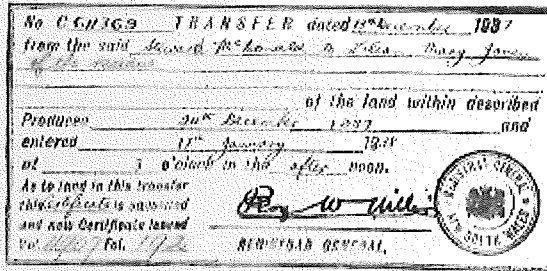 No C 611369 TRANSFER dated 13th December 1937
from the said Edward McDonald to Lilian Mary Jones
of the
of the land within described
Produced 20th December 1937 and
entered 11th January 1938
at o'clock in the after noon.
As to land in this transfer
this Certificate is cancelled
and new Certificate issued
Vol. Fol.
REGISTRAR GENERAL.
REGISTRAR GENERAL NEW SOUTH WALES